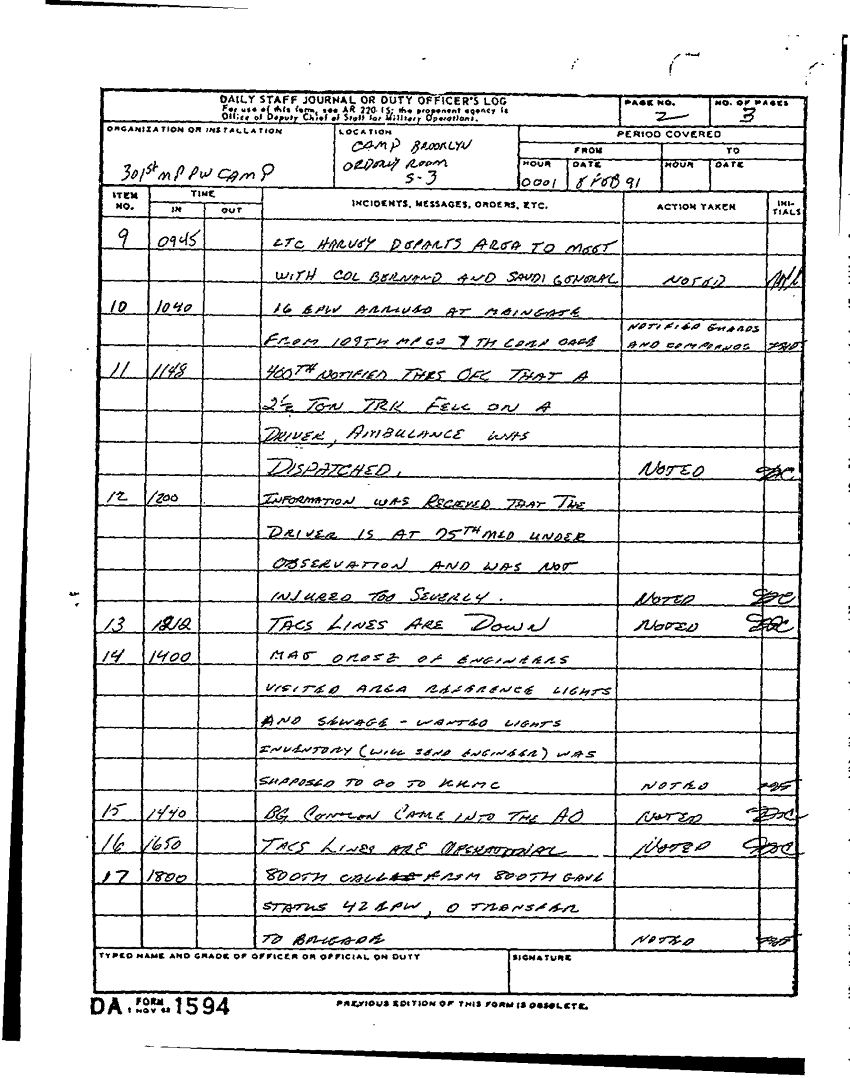 DAILY STAFF JOURNAL OR DUTY OFFICER'S LOG
For use of this form, see AR 220-15; the proponent agency is
Office of Deputy Chief of Staff for Military Operations.
PAGE NO.
2
NO. OF PAGES
3
ORGANIZATION OR INSTALLATION
301st MP PW CAMP
LOCATION
CAMP BROOKLYN
ORDERLY ROOM
S-3
PERIOD COVERED
FROM
TO
HOUR
DATE
HOUR
DATE
0001
8 FEB 91
ITEM NO.
TIME
IN
OUT
INCIDENTS, MESSAGES, ORDERS, ETC.
ACTION TAKEN
INI-TIALS
9 0945 LTC HARVEY DEPARTS AREA TO MEET
WITH COL BERNAND AND SAUDI GENERAL NOTED
10 1040 16 EPW ARRIVED AT MAINGATE
FROM 109TH MP CO 7TH CORP NOTIFIED GUARDS
AND
11 1148 400TH NOTIFIED THRS OFC THAT A
2½ TON TRK FELL ON A
DRIVER, AMBULANCE WAS
DISPATCHED. NOTED
12 1200 INFORMATION WAS RECEVED THAT THE
DRIVER IS AT 75TH MED UNDER
OBSERVATION AND WAS NOT
INJURED TOO SEVERLY. NOTED
13 1212 TACS LINES ARE DOWN NOTED
14 1400 MAJ OROSZ OF ENGINEERS
VISITED AREA REFERENCE LIGHTS
AND SEWAGE - WANTED LIGHTS
INVENTORY (WILL SEND ENGINEER) WAS
SUPPOSED TO GO TO KKMC NOTED
15 1440 BG CONLON CAME INTO THE AO NOTED
16 1650 TACS LINES ARE OPERATIONAL NOTED
17 1800 800TH CALL FROM 800TH GAVE
STATUS 42 EPW, 0 TRANSFER
TO BRIGADE NOTED
TYPED NAME AND GRADE OF OFFICER OR OFFICIAL ON DUTY
SIGNATURE
DA FORM 1 NOV 62 1594
PREVIOUS EDITION OF THIS FORM IS OBSOLETE.